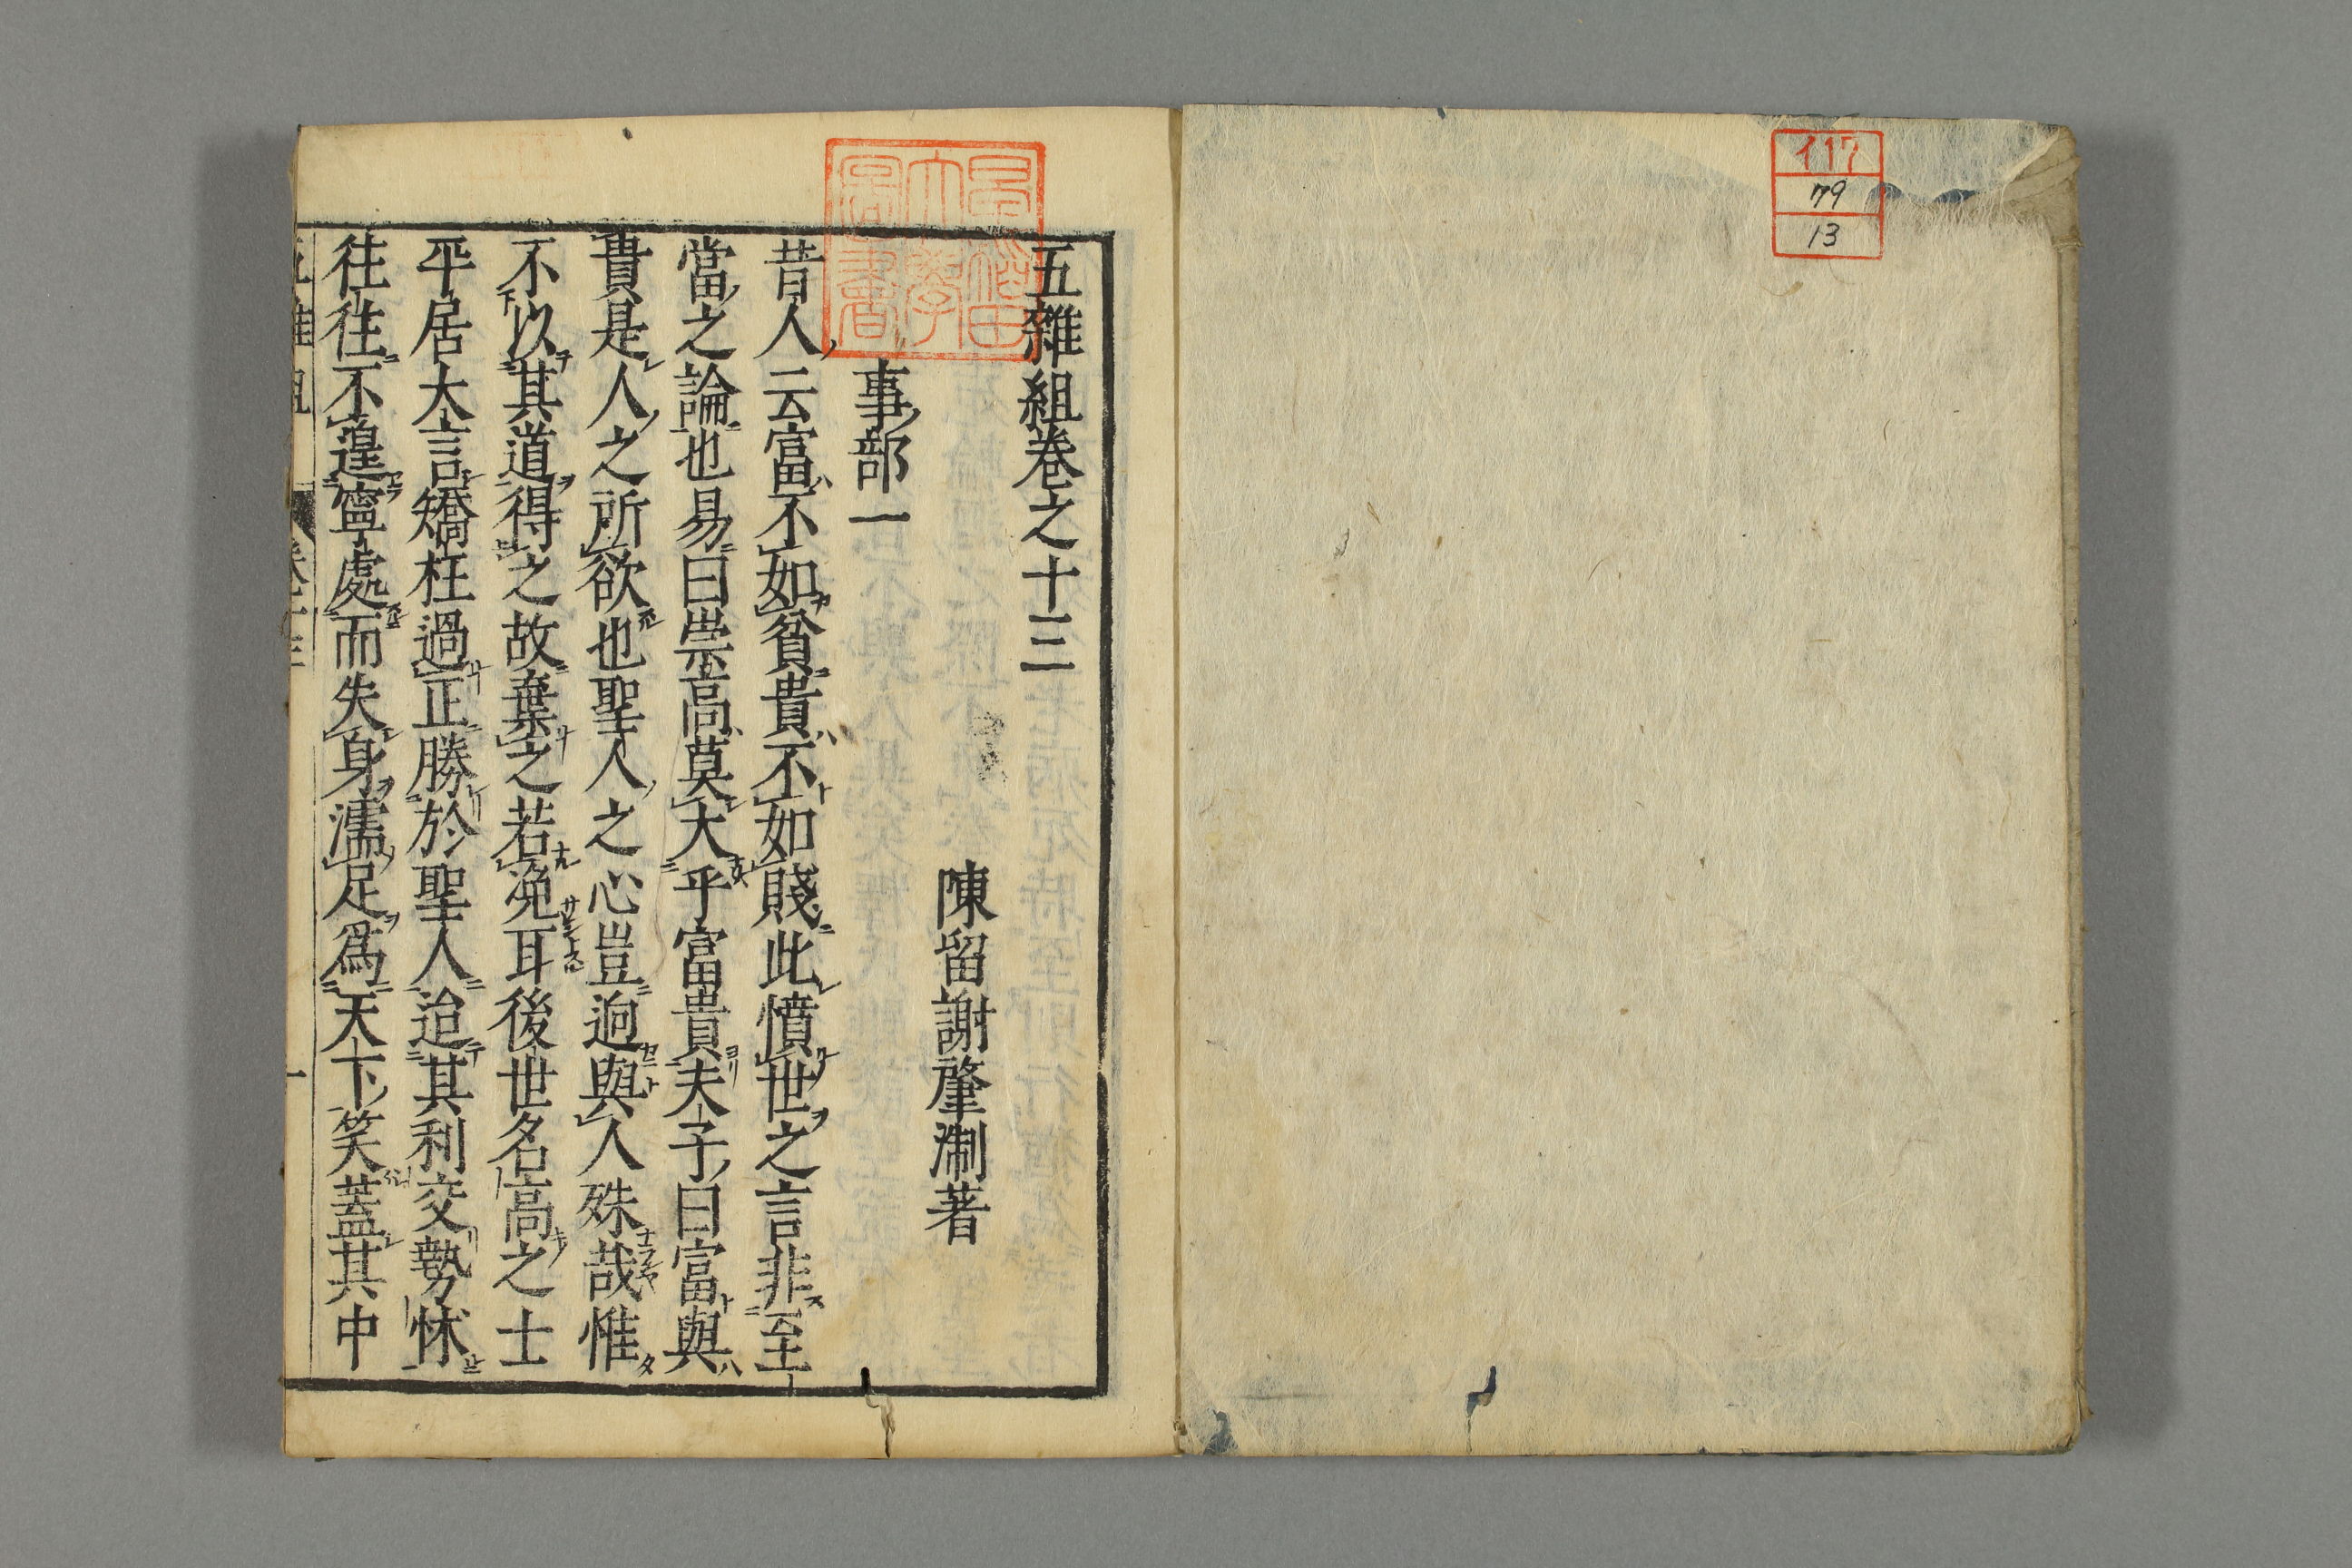 117
79
13
五雜組卷之十三
陳留謝肇淛著
事部一
昔人云富不如貧貴不如賤此憤世之言非至
當之論也易曰崇高莫大乎富貴夫子曰富與
貴是人之所欲也聖人之心豈逈與人殊哉惟
不以其道得之故棄之若浼耳後世名高之士
平居大言矯枉過正勝於聖人迨其利交勢怵
往往不遑寧處而失身濡足爲天下笑蓋其中